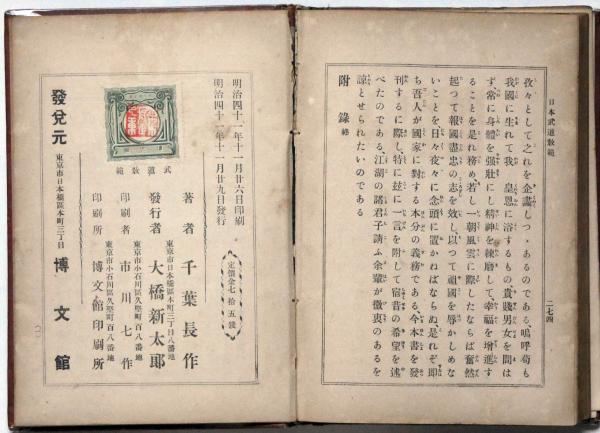 日本武道敎範
二七四
孜々として之れを企畫しつゝあるのである、嗚呼苟も
我國に生れて我 皇恩に浴するもの、貴賤男女を問は
ず、常に身體を强壯にし精神を練磨して、幸福を增進す
ることを是れ務め、若し一朝風雲に際したならば奮然
起つて報國盡忠の志を效し、以つて祖國を辱かしめな
いことを日々夜々に念頭に置かねばならぬ、是れぞ即
ち吾人が國家に對する本分の義務である、今本書を發
刊するに際し、特に玆に一言を附して宿昔の希望を述
べたのである、江湖の諸君子請ふ余輩が微衷のあるを
諒とせられたいのである
附錄 終
明治四十一年十一月廿六日印刷
明治四十一年十一月廿九日發行
定價金七拾五錢
武道敎範
著者 千葉長作
東京市日本橋區本町三丁目八番地
發行者 大橋新太郎
東京市小石川區久堅町百八番地
印刷者 市川七作
東京市小石川區久堅町百八番地
印刷所 博文館印刷所
發兌元 東京市日本橋區本町三丁目 博文館